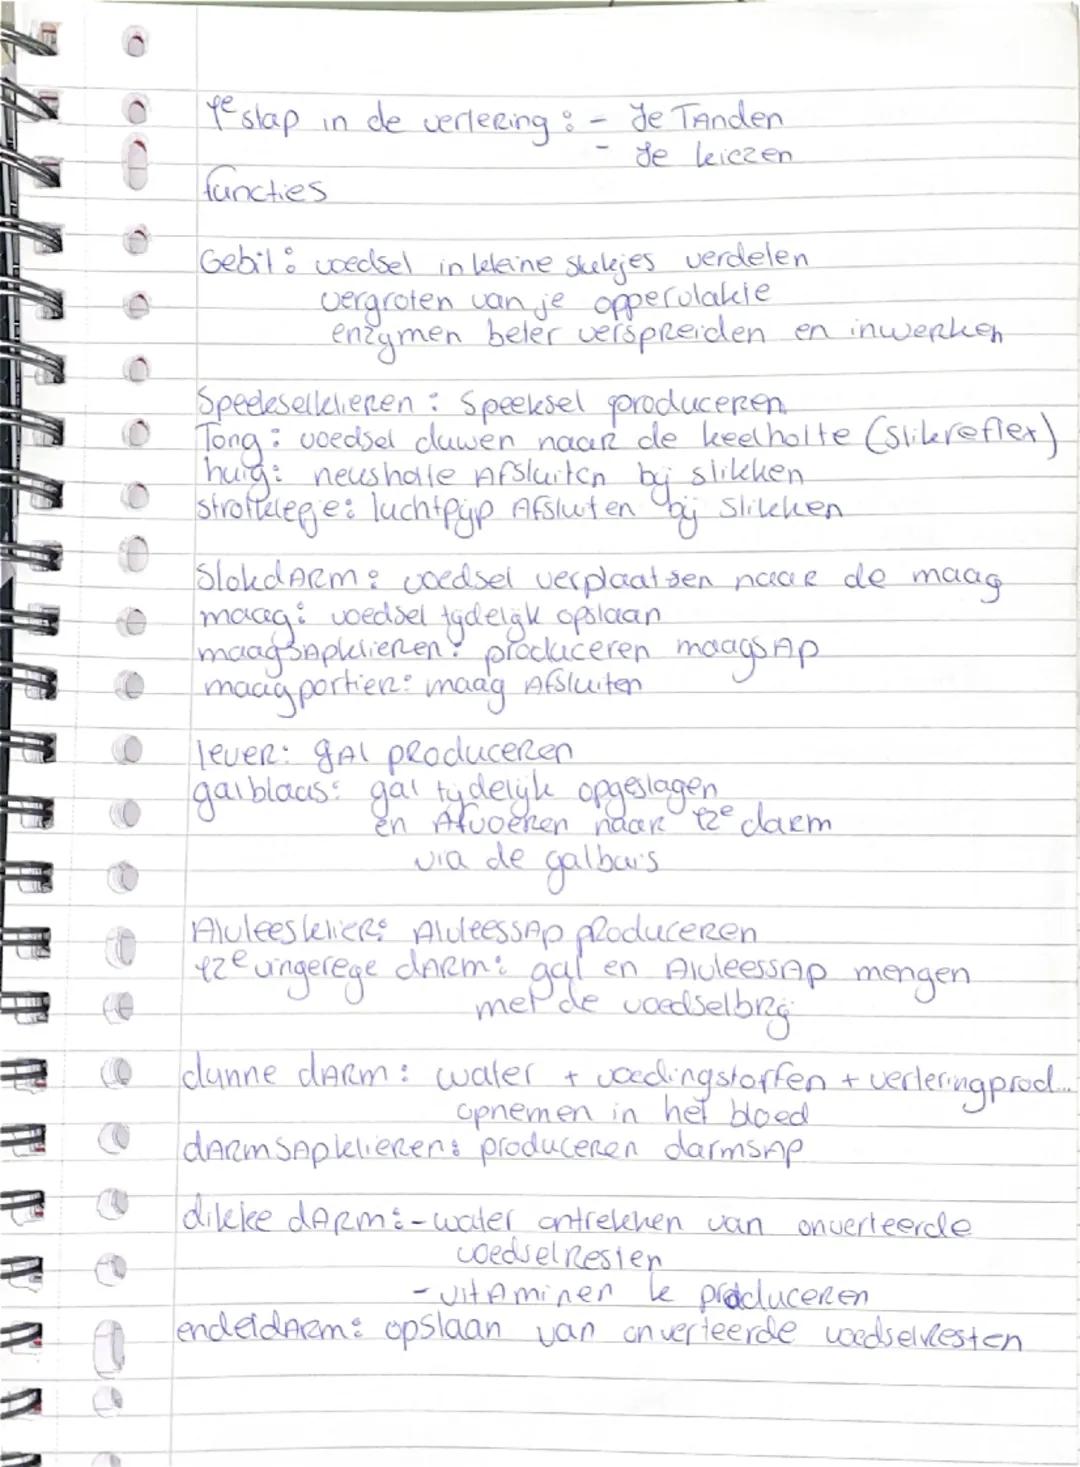 1e stap in de vertering : - Je Tanden
- Je kiezen
functies
Gebit : voedsel in kleine stukjes verdelen
vergroten van je oppervlakte
enzymen beter verspreiden en inwerken
Speekselklieren : Speeksel produceren
Tong : voedsel duwen naar de keelholte (slikreflex)
huig: neusholte Afsluiten bij slikken
strotklepje: luchtpijp Afsluiten bij Slikken
SlokdARm: voedsel verplaatsen naar de maag
maag: voedsel tijdelijk opslaan
maagsApklieren: produceren maagsAp
maagportier: maag Afsluiten
lever: gAl produceren
galblaas: gal tijdelijk opgeslagen
en Afvoeren naar 12e darm
via de galbuis
Alvleesklier: AlvleessAp produceren
12e vingerege dARm: gal en AlvleessAp mengen
met de voedselbrij
dunne dARm: water + voedingstoffen + verteringprod...
opnemen in het bloed
dARmsApklieren: produceren darmsAp
dikke dARm: - water ontrekken van onverteerde
voedselresten
- vitAminen te produceren
endeldARm: opslaan van onverteerde voedselresten